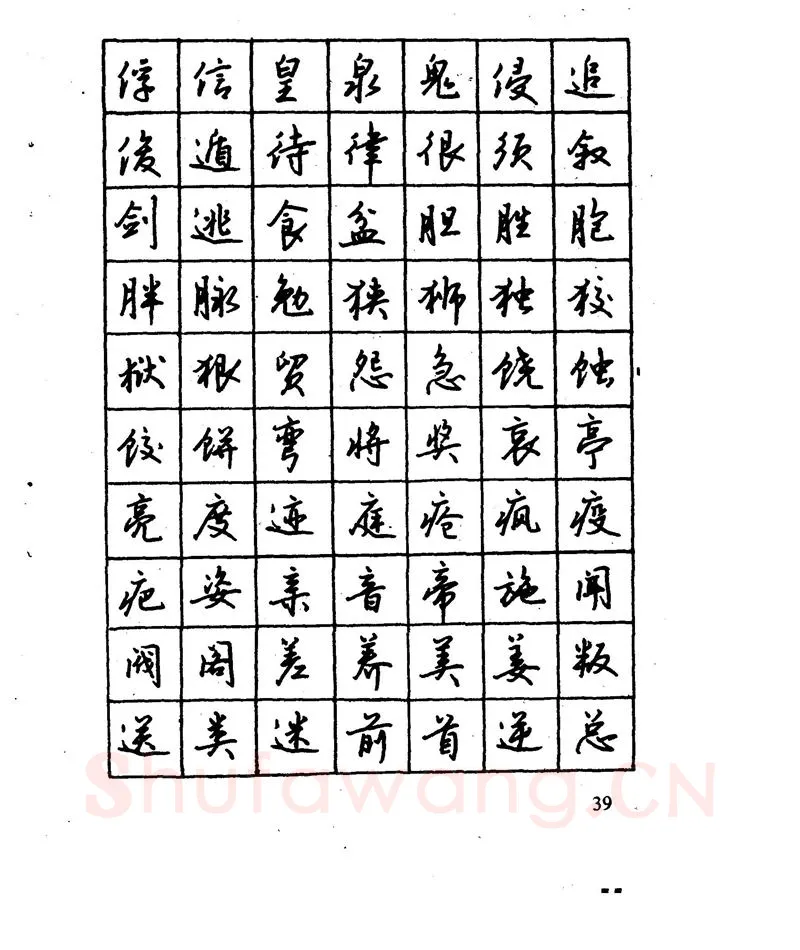 俘信皇泉鬼侵追
俊遁待律很须叙
剑逃食盆胆胜胞
胖脉勉狭狮独狡
狱狠贸怨急饶蚀
饺饼弯将奖哀亭
亮度迹庭疮疯疫
疤姿亲音帝施闻
阀阁差养美姜叛
送类迷前首逆总
Shufawang.CN
39